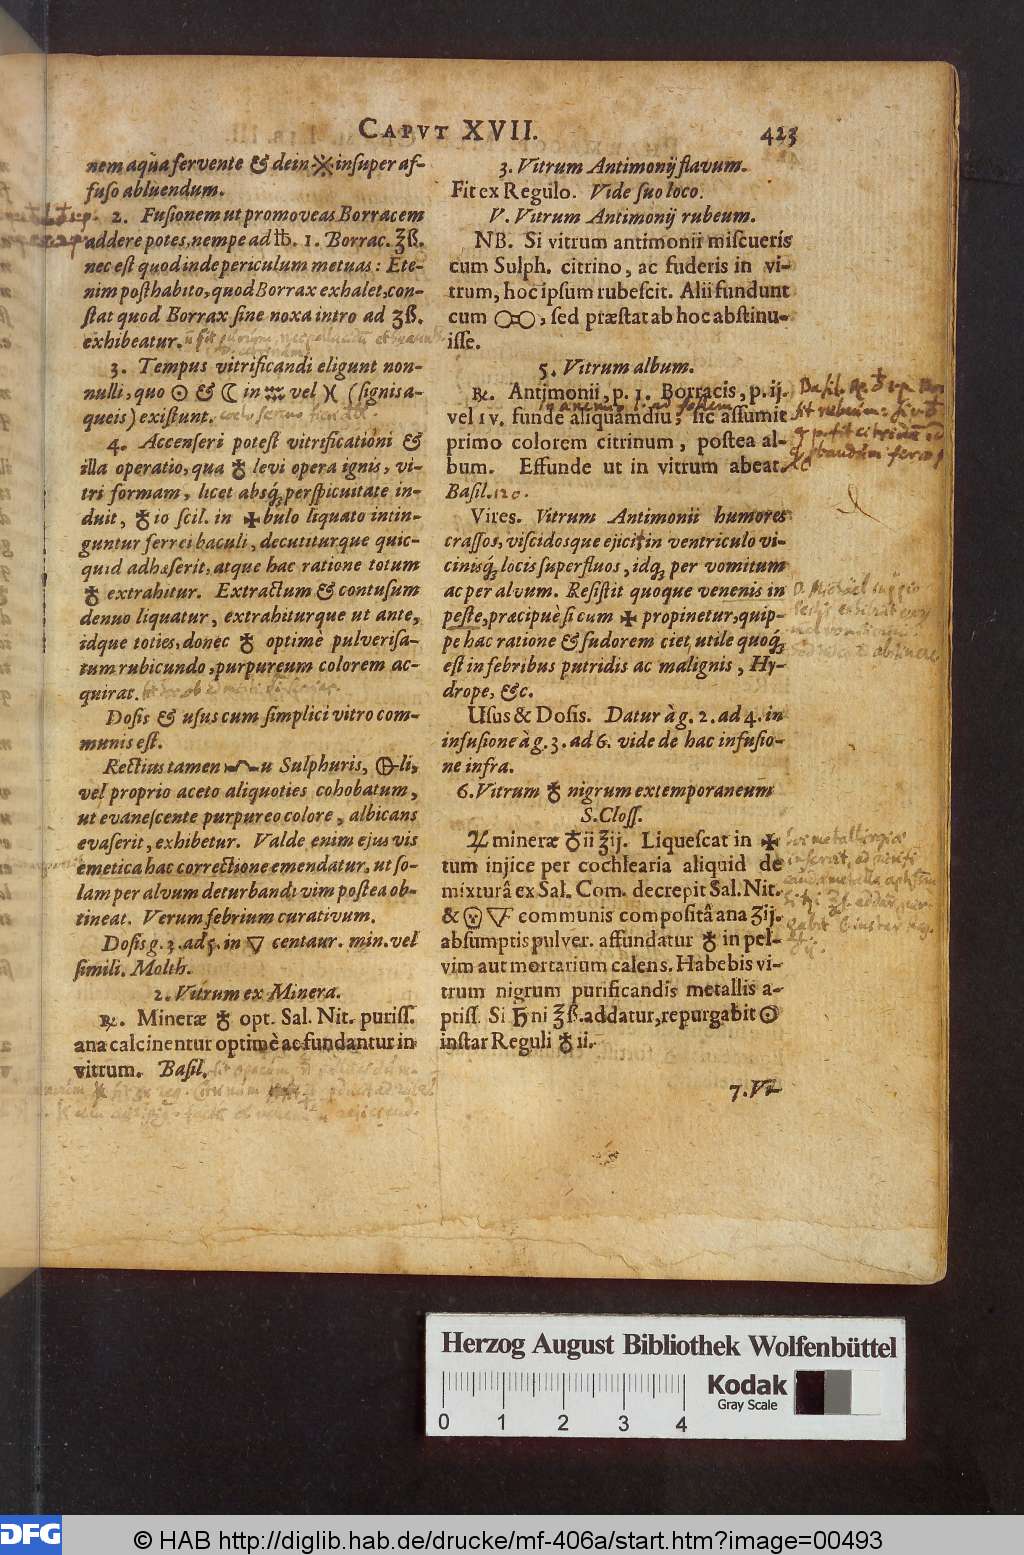 CAPVT XVII. 423
nem aqua fervente & dein ※ insuper af-
fuso abluendum.
2. Fusionem ut promoveas Borracem
addere potes, nempe ad ℔. 1. Borrac. ʒß.
nec est quod inde periculum metuas: Ete-
nim posthabito, quod Borrax exhalet, con-
stat quod Borrax sine noxa intro ad ʒß.
exhibeatur.
3. Tempus vitrificandi eligunt non-
nulli, quo ☉ & ☾ in ♒ vel ♓ (signis a-
queis) existunt.
4. Accenseri potest vitrificationi &
illa operatio, qua ♁ levi opera ignis, vi-
tri formam, licet absq; perspicuitate in-
duit, ♁io scil. in ✠bulo liquato intin-
guntur ferrei baculi, decutiturque quic-
quid adhæserit, atque hac ratione totum
♁ extrahitur. Extractum & contusum
denuo liquatur, extrahiturque ut ante,
idque toties, donec ♁ optimè pulverisa-
tum rubicundo, purpureum colorem ac-
quirat.
Dosis & usus cum simplici vitro com-
munis est.
Rectius tamen u Sulphuris, li,
vel proprio aceto aliquoties cohobatum,
ut evanescente purpureo colore, albicans
evaserit, exhibetur. Valde enim ejus vis
emetica hac correctione emendatur, ut so-
lam per alvum deturbandi vim postea ob-
tineat. Verum febrium curativum.
Dosis g. 3. ad 5. in ▽ centaur. min. vel
simili. Molth.
2. Vitrum ex Minera.
℞. Mineræ ♁ opt. Sal. Nit. puriss.
ana calcinentur optimè ac fundantur in
vitrum. Basil.
3. Vitrum Antimonij flavum.
Fit ex Regulo. Vide suo loco.
V. Vitrum Antimonij rubeum.
NB. Si vitrum antimonii miscueris
cum Sulph. citrino, ac fuderis in vi-
trum, hoc ipsum rubescit. Alii fundunt
cum , sed præstat ab hoc abstinu-
isse.
5. Vitrum album.
℞. Antimonii, p. 1. Borracis, p. ij.
vel iv. funde aliquamdiu, sic assumit
primo colorem citrinum, postea al-
bum. Effunde ut in vitrum abeat.
Basil. 120.
Vires. Vitrum Antimonii humores
crassos, viscidosque ejicit in ventriculo vi-
cinisq; locis superfluos, idq; per vomitum
ac per alvum. Resistit quoque venenis in
peste, præcipuè si cum ✠ propinetur, quip-
pe hac ratione & sudorem ciet, utile quoq;
est in febribus putridis ac malignis, Hy-
drope, &c.
Usus & Dosis. Datur à g. 2. ad 4. in
infusione à g. 3. ad 6. vide de hac infusio-
ne infra.
6. Vitrum ♁ nigrum extemporaneum
S. Closs.
♃ mineræ ♁ii ʒij. Liquescat in ✠
tum injice per cochlearia aliquid de
mixturâ ex Sal. Com. decrepit Sal. Nit.
& communis compositâ ana ʒij.
absumptis pulver. affundatur ♁ in pel-
vim aut mortarium calens. Habebis vi-
trum nigrum purificandis metallis a-
ptiss. Si ♄ni ʒß. addatur, repurgabit ☉
instar Reguli ♁ii.
7. Vi-
Herzog August Bibliothek Wolfenbüttel
0 1 2 3 4
Kodak
Gray Scale
DFG
© HAB http://diglib.hab.de/drucke/mf-406a/start.htm?image=00493